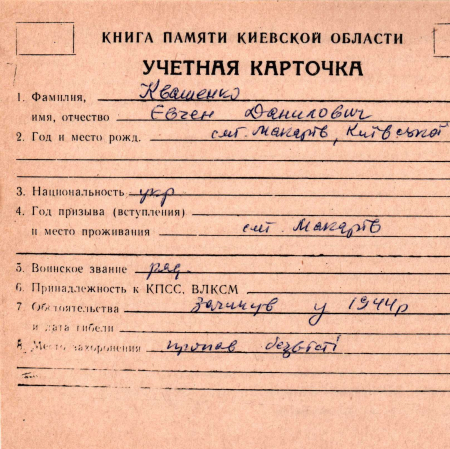 КНИГА ПАМЯТИ КИЕВСКОЙ ОБЛАСТИ
УЧЕТНАЯ КАРТОЧКА
1. Фамилия, Квашенко
имя, отчество Євген Данилович
2. Год и место рожд. смт. Макарів, Київської
3. Национальность укр
4. Год призыва (вступления)
и место проживания смт. Макарів
5. Воинское звание ряд.
6. Принадлежность к КПСС, ВЛКСМ
7. Обстоятельства загинув у 1944р
и дата гибели
8. Место захоронения пропав безвісті